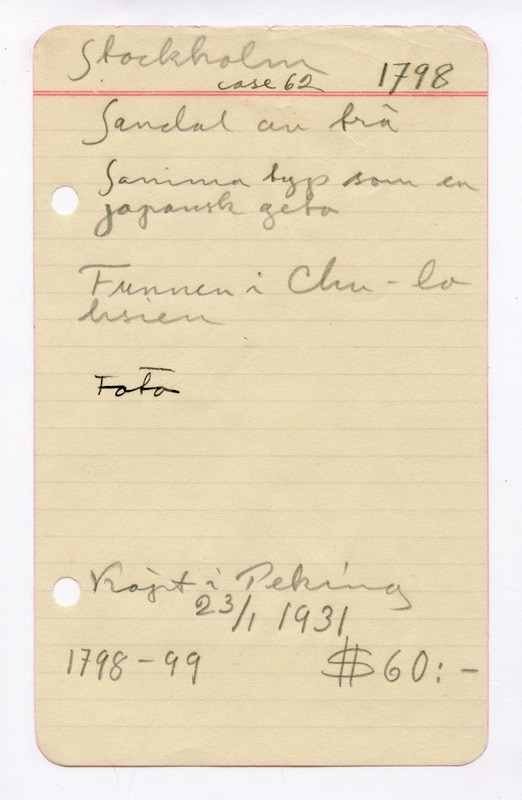 Stockholm
case 62 1798
Sandal av trä
Samma typ som en
japansk geta
Funnen i Chu-lo
hsien
Foto
Köpt i Peking
23/1 1931
1798-99 $60:-